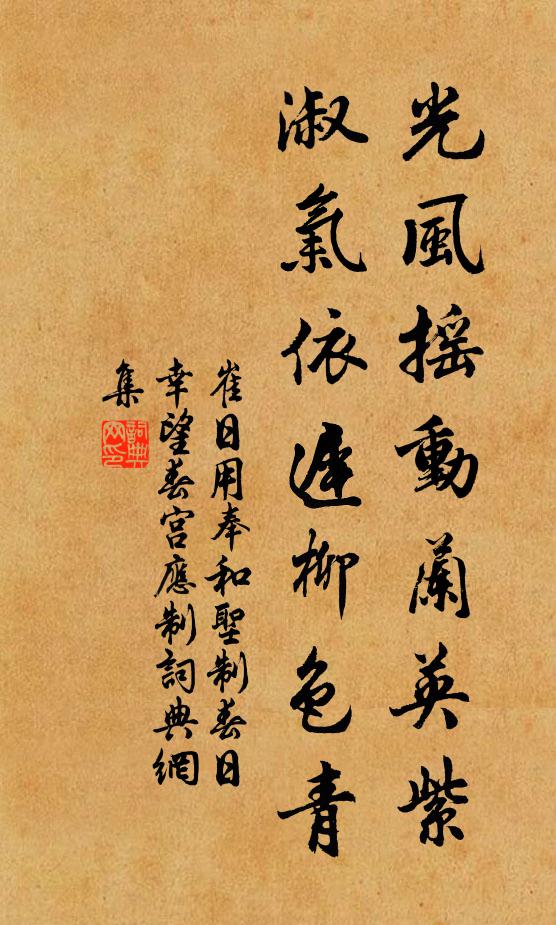 光風搖動蘭英紫
淑氣依遲柳色青
崔日用奉和聖制春日
幸望春宮應制詞典網
集
詞典
网印